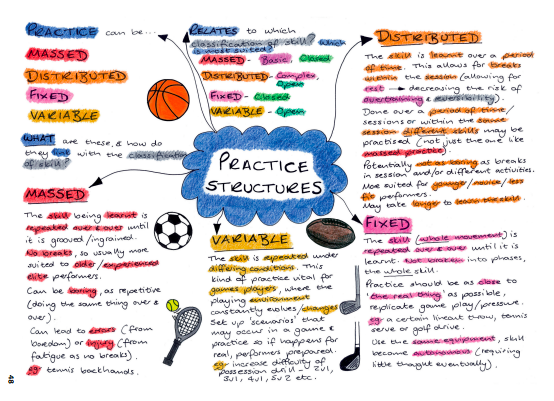 PRACTICE can be...
MASSED
DISTRIBUTED
FIXED
VARIABLE
WHAT are these, & how do
they link with the classification
of skill?
RELATES to which
classification of skill? Which
is most suited?
MASSED - Basic, Closed
DISTRIBUTED - Complex,
Open
FIXED - Closed
VARIABLE - Open
PRACTICE
STRUCTURES
DISTRIBUTED
The skill is learnt over a period
of time. This allows for breaks
within the session (allowing for
rest → decreasing the risk of
overtraining & reversibility).
Done over a period of time/
sessions or within the same
session different skills may be
practised (not just the one like
massed practice).
Potentially not as boring as breaks
in session and/or different activities.
More suited for younger/novice/less
fit performers.
May take longer to learn the skill
MASSED
The skill being learnt is
repeated over & over until
it is grooved/ingrained.
No breaks, so usually more
suited to older/experienced
elite performers.
Can be boring, as repetitive
(doing the same thing over &
over).
Can lead to errors (from
boredom) or injury (from
fatigue as no breaks).
eg tennis backhands.
VARIABLE
The skill is repeated under
differing conditions. This
kind of practice vital for
games players, where the
playing environment
constantly evolves/changes
Set up 'scenarios' that
may occur in a game &
practice so if happens for
real, performers prepared.
eg increase difficulty of
possession drill - 2v1,
3v1, 4v1, 5v2 etc.
FIXED
The skill (whole movement) is
repeated over & over until it is
learnt. Not broken into phases,
the whole skill.
Practice should be as close to
'the real thing' as possible,
replicate game play/pressure.
eg a certain lineout throw, tennis
serve or golf drive.
Use the same equipment, skill
become autonomous (requiring
little thought eventually).
48